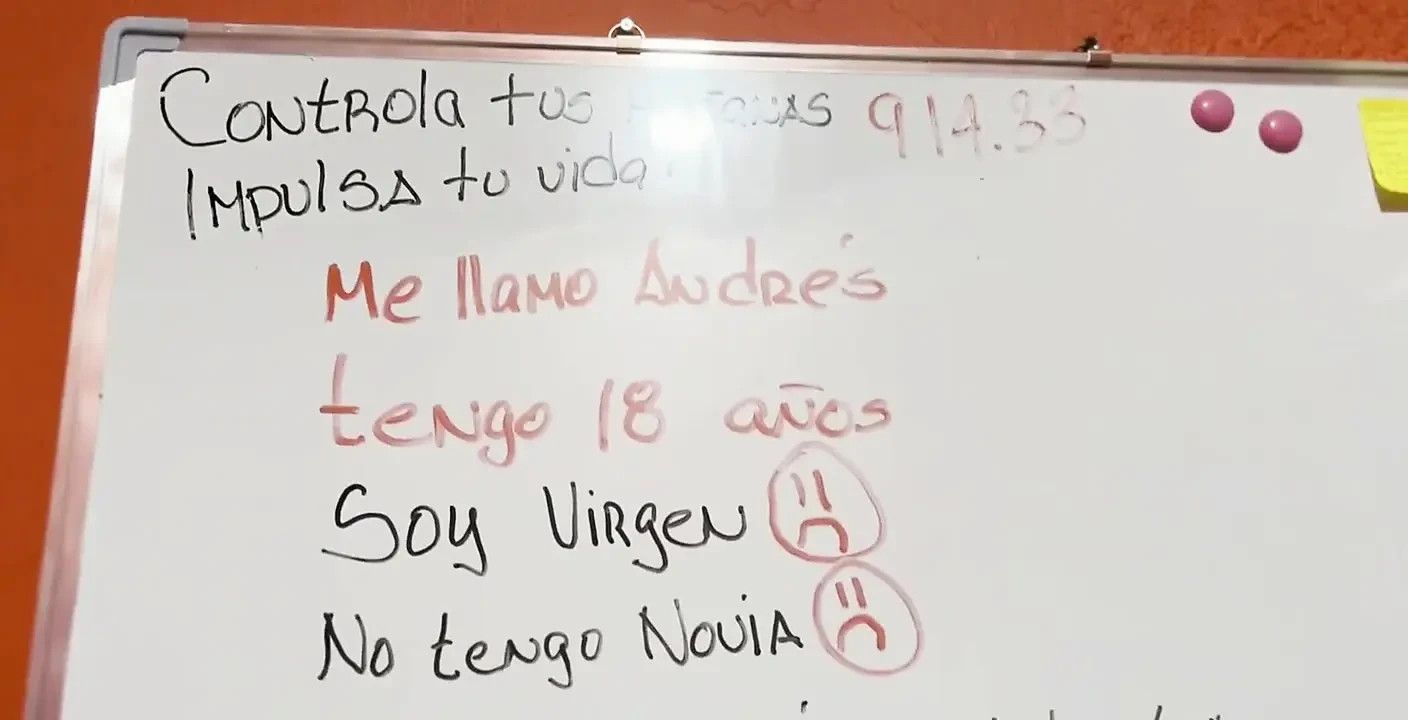 CONtROla tus 914.33
IMPUlSA tu vida
Me llamo Andrés
tengo 18 años
Soy Virgen
No tengo Novia